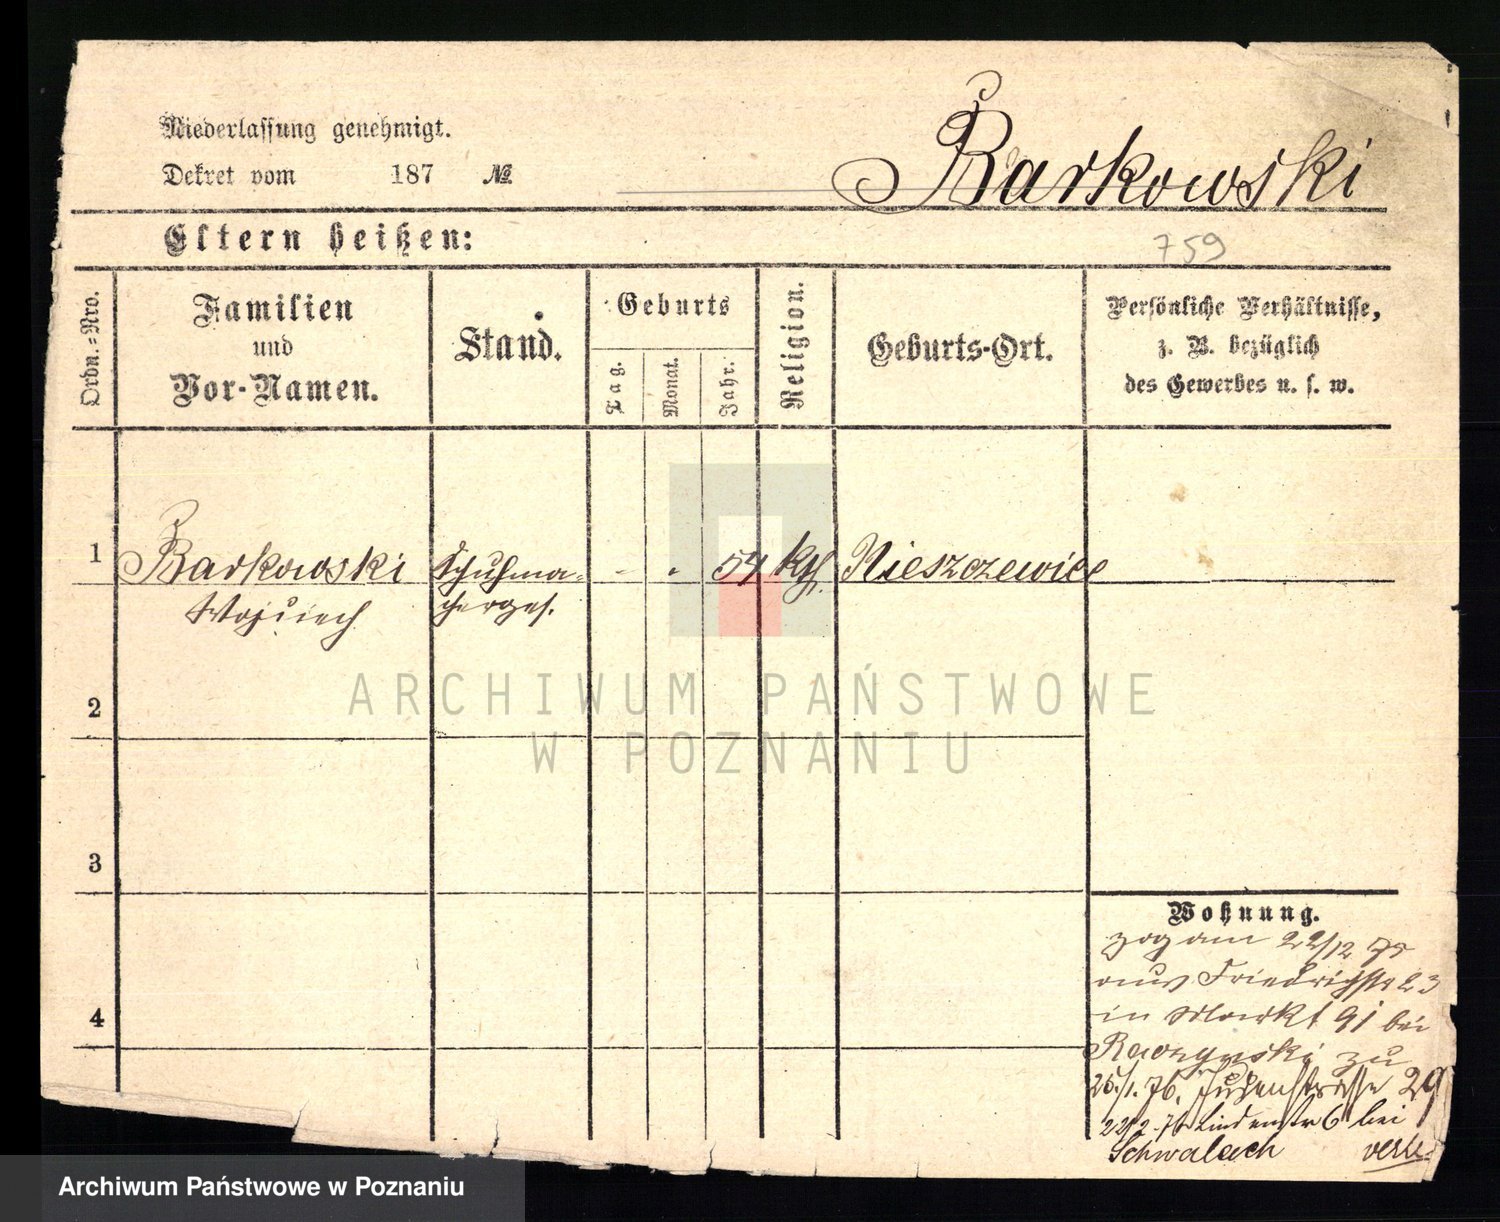 Niederlassung genehmigt.
Dekret vom 187 №
Barkowski
Eltern heißen:
759
Ordn.=Nro.
Familien
und
Vor-Namen.
Stand.
Geburts
Tag.
Monat.
Jahr.
Religion.
Geburts-Ort.
Persönliche Verhältnisse,
z. B. bezüglich
des Gewerbes u. s. w.
1
Barkowski
Wojciech
Schuhma-
cherges.
- - 54
kth.
Nieszczewice
2
3
4
Wohnung.
zog am 22/12 75
aus Friedrichstr 23
in Markt 91 bei
zu
1. 76. Judenstrasse 29
22/2. 76 Lindenstr 6 bei
Schwalach
ARCHIWUM PAŃSTWOWE
W POZNANIU
Archiwum Państwowe w Poznaniu